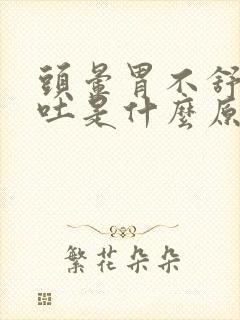 頭暈胃不舒
吐是什麼原
繁花朵朵